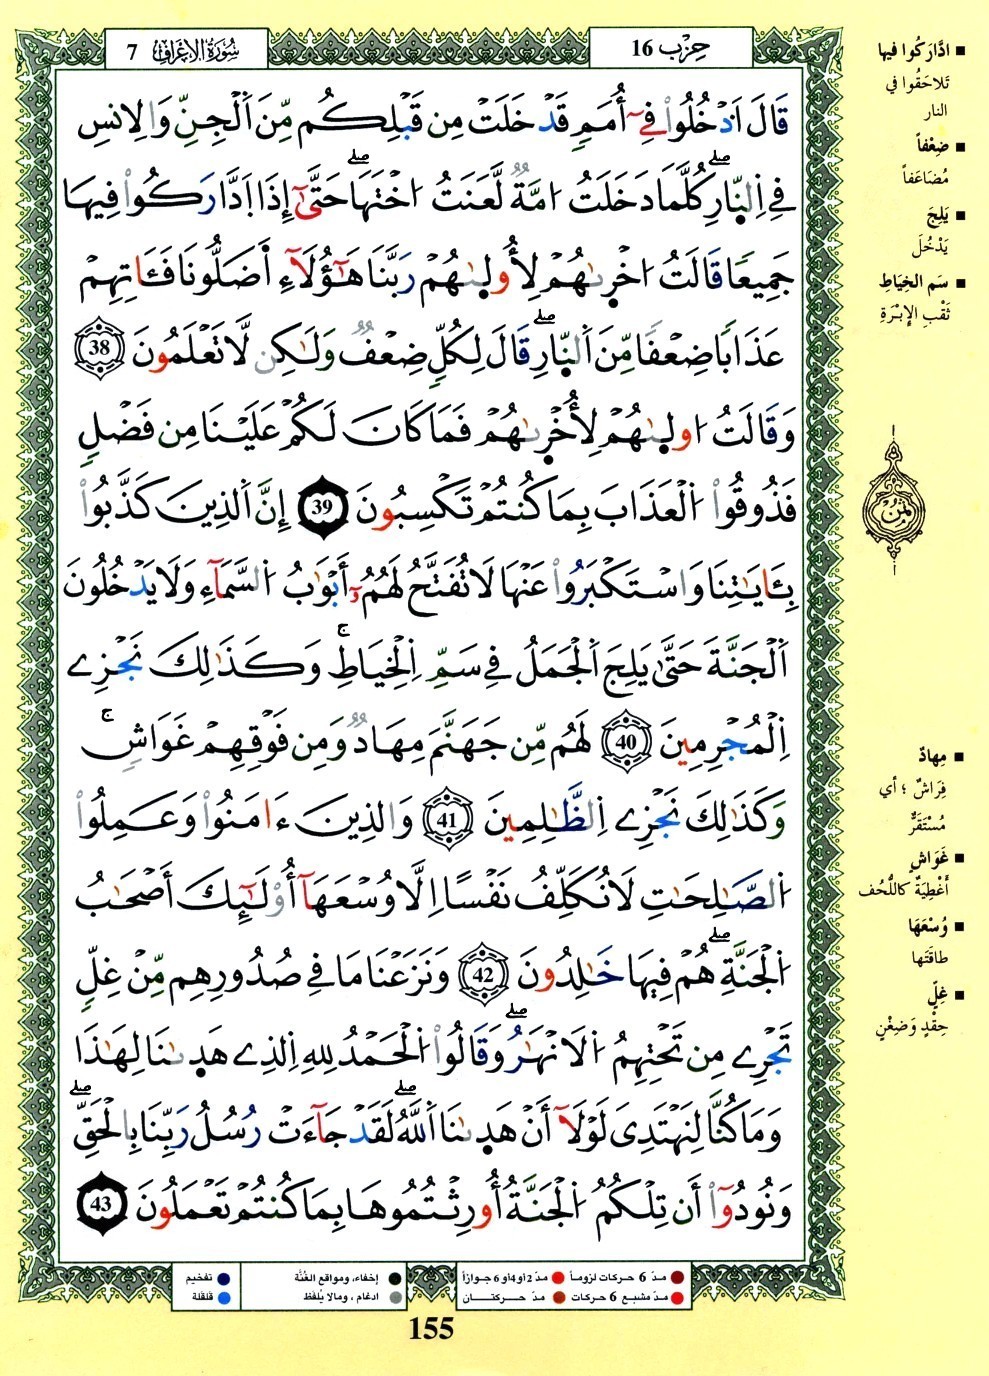 سُورَةُ الاَعْرَافِ 7
حِزْب 16
قَالَ اَدْخُلُواْ فِےٓ أُمَمٖ قَدْ خَلَتْ مِن قَبْلِكُم مِّنَ اَ۬لْجِنِّ وَالِانسِ
فِے اِ۬لنّ۪ارِۖ كُلَّمَا دَخَلَتُ ا۟مَّةٞ لَّعَنَتُ ا۟خْتَهَاۖ حَتَّىٰٓ إِذَا اَ۪دَّارَكُواْ فِيهَا
جَمِيعاٗ قَالَتُ ا۟خْر۪ىٰهُمْ لِأُول۪ىٰهُمْ رَبَّنَا هَٰٓؤُلَآءِ اَ۬ضَلُّونَا فَـَٔاتِهِمْ
عَذَاباٗ ضِعْفاٗ مِّنَ اَ۬لنّ۪ارِۖ قَالَ لِكُلّٖ ضِعْفٞ وَلَٰكِن لَّا تَعْلَمُونَ 38
وَقَالَتُ ا۟ول۪ىٰهُمْ لِأُخْر۪ىٰهُمْ فَمَا كَانَ لَكُمْ عَلَيْنَا مِن فَضْلٖ
فَذُوقُواْ اُ۬لْعَذَابَ بِمَا كُنتُمْ تَكْسِبُونَ 39 إِنَّ اَ۬لذِينَ كَذَّبُواْ
بِـَٔايَٰتِنَا وَاسْتَكْبَرُواْ عَنْهَا لَا تُفَتَّحُ لَهُمُۥٓ أَبْوَٰبُ اُ۬لسَّمَآءِ وَلَا يَدْخُلُونَ
اَ۬لْجَنَّةَ حَتَّىٰ يَلِجَ اَ۬لْجَمَلُ فِے سَمِّ اِ۬لْخِيَاطِۚ وَكَذَٰلِكَ نَجْزِے
اِ۬لْمُجْرِمِينَ 40 لَهُم مِّن جَهَنَّمَ مِهَادٞ وَمِن فَوْقِهِمْ غَوَاشٖۚ
وَكَذَٰلِكَ نَجْزِے اِ۬لظَّٰلِمِينَ 41 وَالذِينَ ءَامَنُواْ وَعَمِلُواْ
اُ۬لصَّٰلِحَٰتِ لَا نُكَلِّفُ نَفْساً اِلَّا وُسْعَهَآ أُوْلَٰٓئِكَ أَصْحَٰبُ
اُ۬لْجَنَّةِۖ هُمْ فِيهَا خَٰلِدُونَ 42 وَنَزَعْنَا مَا فِے صُدُورِهِم مِّنْ غِلّٖ
تَجْرِے مِن تَحْتِهِمُ اُ۬لَانْهَٰرُۖ وَقَالُواْ اُ۬لْحَمْدُ لِلهِ اِ۬لذِے هَد۪ىٰنَا لِهَٰذَا
وَمَا كُنَّا لِنَهْتَدِيَ لَوْلَآ أَنْ هَد۪ىٰنَا اَ۬للَّهُۖ لَقَدْ جَآءَتْ رُسُلُ رَبِّنَا بِالْحَقِّۖ
وَنُودُوٓاْ أَن تِلْكُمُ اُ۬لْجَنَّةُ أُورِثْتُمُوهَا بِمَا كُنتُمْ تَعْمَلُونَ 43
■ ادَّارَكُوا فيها
تَلاحَقُوا في
النار
■ ضِعْفاً
مُضَاعَفاً
■ يَلِجَ
يَدْخُلَ
■ سَم الخِيَاطِ
ثَقْبِ الإِبْرَةِ
ثمن
■ مِهادٌ
فِرَاشٌ ؛ أي
مُسْتَقَرٌّ
■ غَوَاشٍ
أَغْطِيَةٌ كاللُّحُف
■ وُسْعَهَا
طاقَتَها
■ غِلٍّ
حِقْدٍ وَضِغْنٍ
مدّ 6 حركات لزوماً
مدّ 2 أو 4 أو 6 جوازاً
إخفاء، ومواقع الغُنَّة
تفخيم
مدّ مشبع 6 حركات
مدّ حركتان
ادغام ، ومالا يُلفَظ
قلقلة
155